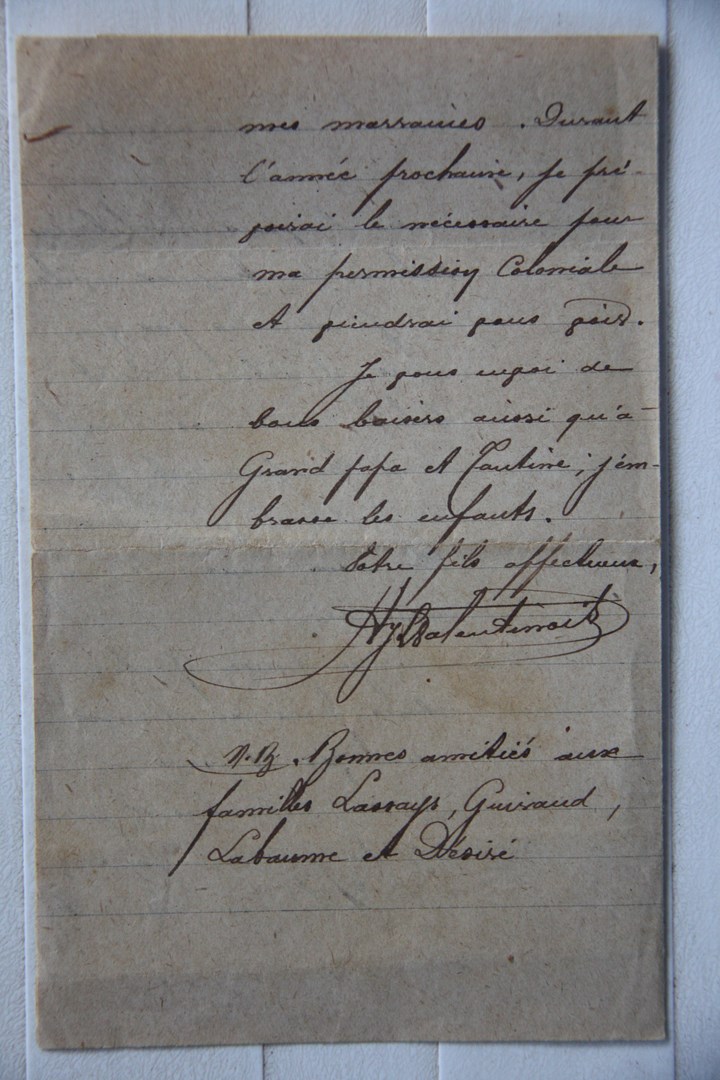 mes marraines. Durant
l'année prochaine, je pré-
voirai le nécessaire pour
ma permission Coloniale
et viendrai vous voir.
Je vous envoi de
bons baisers ainsi qu'à
Grand papa et Tantine; j'em-
brasse les enfants.
Votre fils affectueux,
Hy Valentinois
N.B. Bonnes amitiés aux
familles Lassays, Guiraud,
Labaume et Désiré